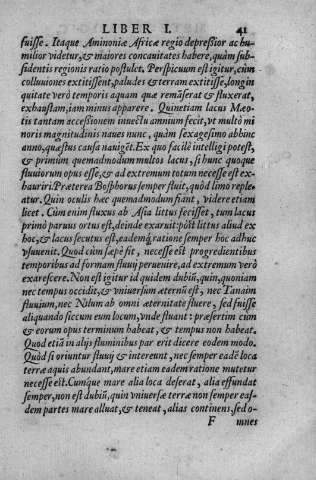 LIBER I. 41
fuisse. Itaque Aminoniæ Africæ regio depreßior ac hu-
milior videtur, & maiores concauitates habere, quàm sub-
sidentis regionis ratio postulet. Perspicuum est igitur, cùm
colluuiones extitissent, paludes & terram extitisse, longin
quitate verò temporis aquam quæ remãserat & fluxerat,
exhaustam, iam minus apparere. Quinetiam lacus Mæo-
tis tantam accessionem inuectu amnium fecit, vt multò mi
noris magnitudinis naues nunc, quàm sexagesimo abhinc
anno, quæstus causa nauigẽt. Ex quo facilè intelligi potest,
& primùm quemadmodum multos lacus, si hunc quoque
fluuiorum opus esse, & ad extremum totum necesse est ex-
hauriri. Præterea Bosphorus semper fluit, quòd limo reple-
atur. Quin oculis hæc quemadmodum fiant, videre etiam
licet. Cùm enim fluxus ab Asia littus fecisset, tum lacus
primò paruus ortus est, deinde exaruit: pòst littus aliud ex
hoc, & lacus secutus est, eademq́; ratione semper hoc adhuc
vsuuenit. Quod cùm sæpè fit, necesse est progredientibus
temporibus ad formam fluuij peruenire, ad extremum verò
exarescere. Non est igitur id quidem dubiũ, quin, quoniam
nec tempus occidit, & vniuersum æternũ est, nec Tanaim
fluuium, nec Nilum ab omni æternitate fluere, sed fuisse
aliquando siccum eum locum, vnde fluunt: præsertim cùm
& eorum opus terminum habeat, & tempus non habeat.
Quod etiã in alijs fluminibus par erit dicere eodem modo.
Quòd si oriuntur fluuij & intereunt, nec semper eadẽ loca
terræ aquis abundant, mare etiam eadem ratione mutetur
necesse est. Cumq́ue mare alia loca deserat, alia effundat
semper, non est dubiũ, quin vniuersæ terræ non semper eæ-
dem partes mare alluat, & teneat, alias continens, sed o-
F mnes